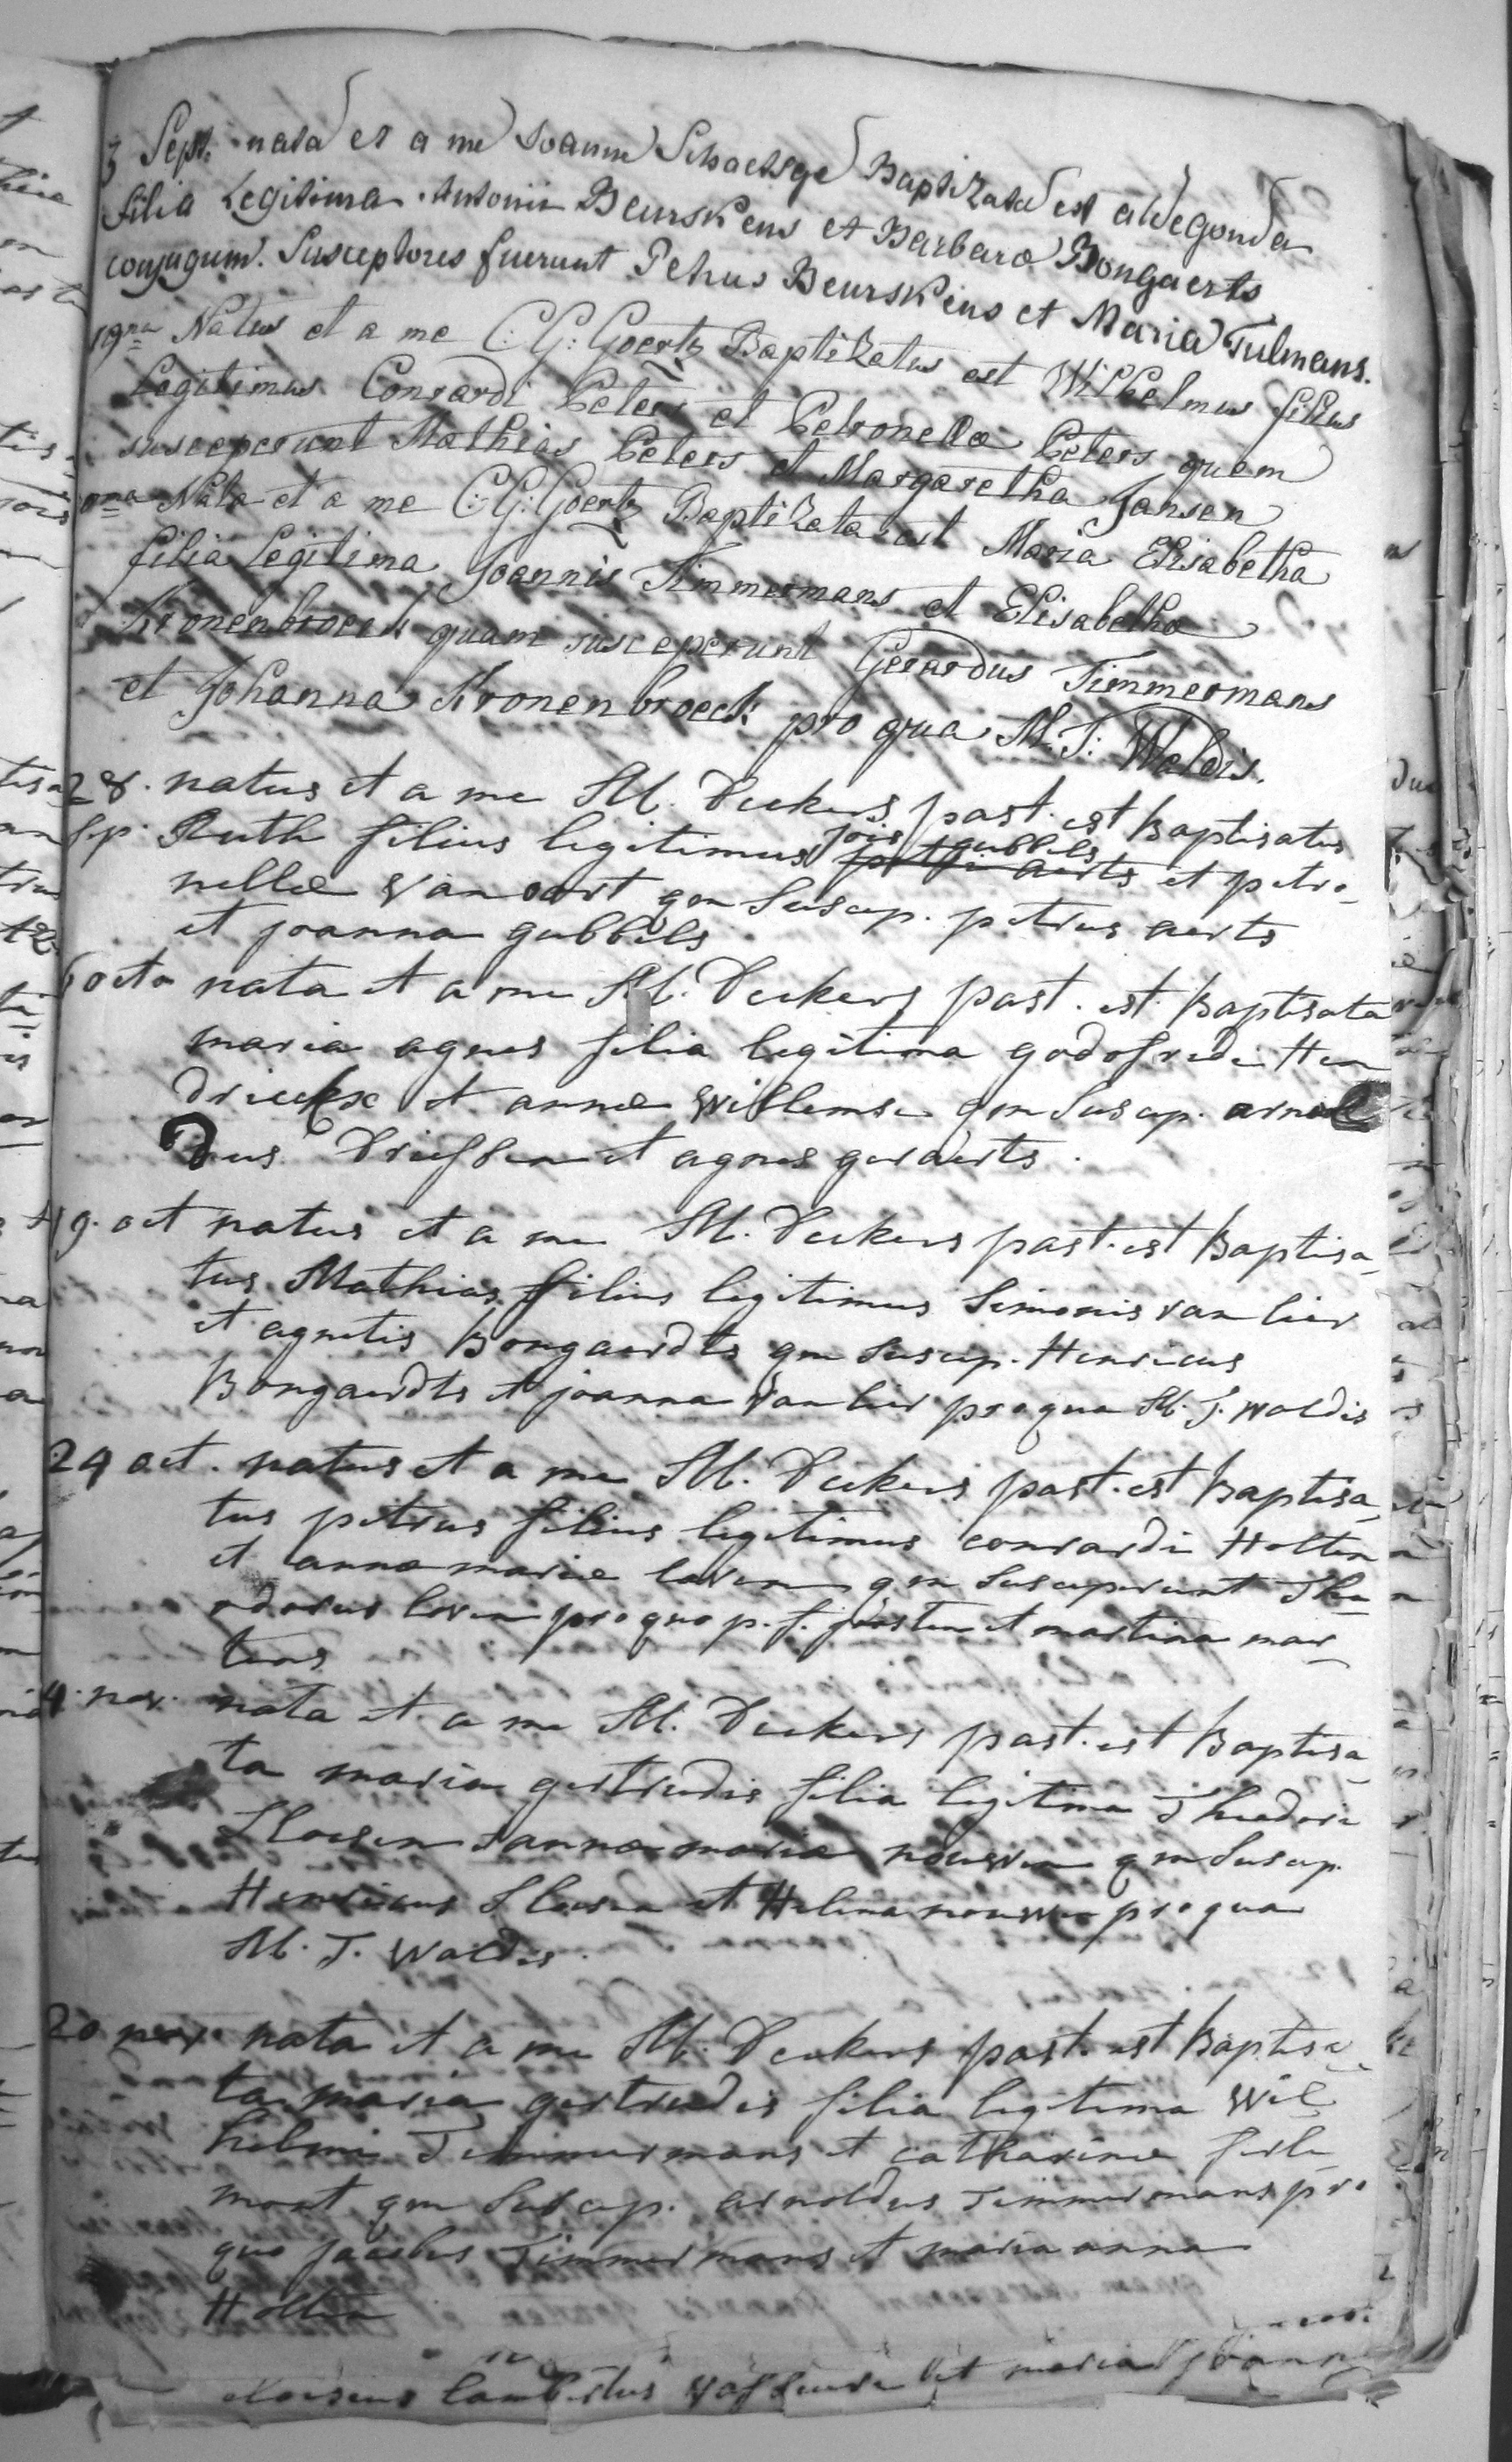 3 Sept. nata et a me Joanne Schaetsge Baptizata est aldegonda
filia Legitima Antonii Beurskens et Barbara Bongaerts
conjugum. Susceptores fuerunt Petrus Beurskens et Maria Tulmans.
19na Natus et a me C: G: Goertz Baptizatus est Wilhelmus filius
Legitimus Conrardi Peters et Petronella Peters quem
susceperunt Mathias Peters et Margaretha Jansen
Nata et a me C: G: Goertz Baptizata est Maria Elisabetha
filia Legitima Joannis Timmermans et Elisabetha
Kronenbroeck quam susceperunt Gerardus Timmermans
et Johanna Kronenbroeck pro qua M. T: Waldis.
28. natus et a me M. Deckers past. est Baptisatus
Sep. Ruth filius legitimus jois gubbels et petro-
nellæ van oort qm Suscep. petrus aerts
et joanna gubbels
octo nata et a me M. Deckers past. est Baptisata
maria agnes filia legitima godofredi Hen
drickx et annæ Willemse qm Suscep. arnol
dus Driessen et agnes geraerts.
19. oct natus et a me M. Deckers past. est Baptisa-
tus Mathias filius legitimus Simonis van lier
et agnetis Bongaerdts qm Suscep. Henricus
Bongaerdts et joanna Van lier pro qua M. T. Waldis
24 oct. natus et a me M. Deckers past. est Baptisa-
tus petrus filius legitimus conrardi Holten
et annæ mariæ loven qm Susceperunt The-
odorus loven pro quo p. f. joosten et martina mar-
tens
4. nov. nata et a me M. Deckers past. est Baptisa-
ta maria gertrudis filia legitima Theodori
Sloesen annæ mariæ nouwen qm Suscep.
Henricus Sloesen et Helena nouwen pro qua
M. T. Waldis.
20 nov. nata et a me M. Deckers past. est Baptisa-
ta maria gertrudis filia legitima Wil-
helmi Timmermans et catharinæ ferle-
mont qm Suscep. arnoldus Timmermans pro
quo jacobus Timmermans et maria anna
Holten
lambertus et maria